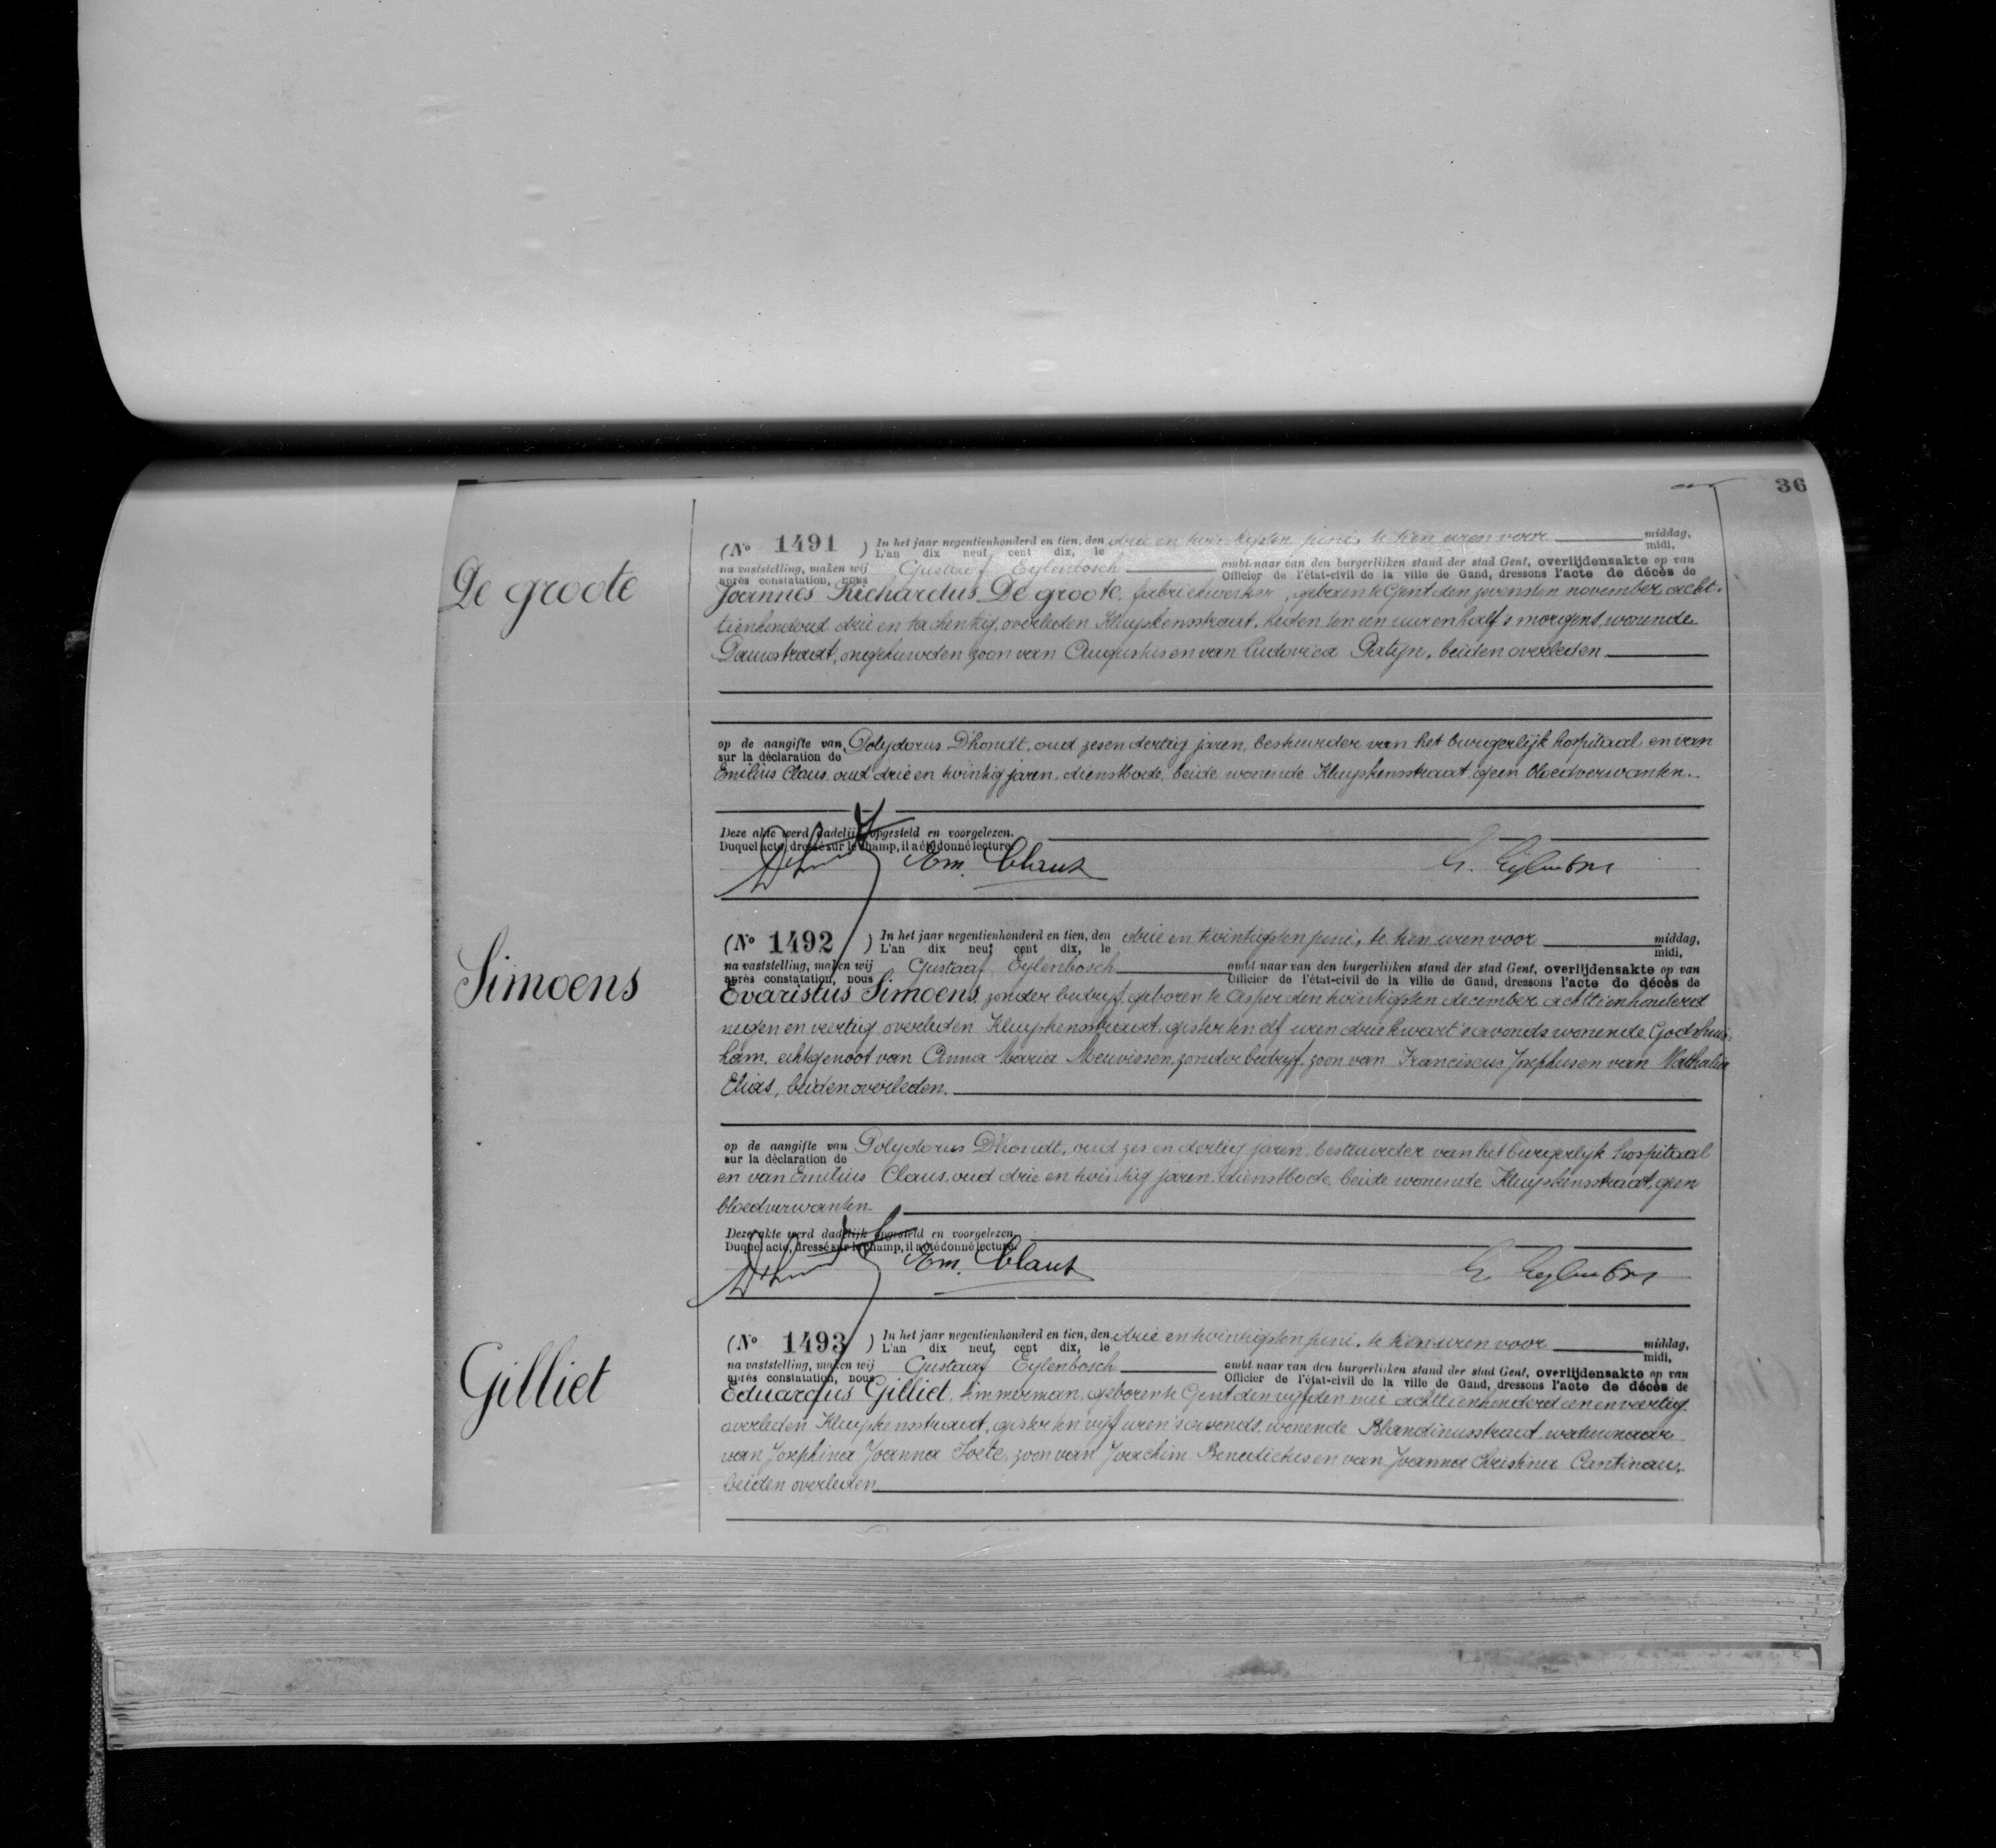 36
De groote
(No 1491 ) In het jaar negentienhonderd en tien, den drie en twintigsten juni, te tien uren voor middag,
L'an dix neuf cent dix, le midi,
na vaststelling, maken wij Gustaaf Eylenbosch ambtenaar van den burgerlijken stand der stad Gent, overlijdensakte op van
après constatation, nous Officier de l'état-civil de la ville de Gand, dressons l'acte de décès de
Joannes Richardus De groote, fabriekwerker, geboren te Gent den zevensten november acht-
tienhonderd drie en tachentig, overleden Kluyskensstraat, heden ten een uur en half 's morgens, wonende
Damstraat, ongehuwden zoon van Augustus en van Ludovica Patijn, beiden overleden
op de aangifte van Polydorus D'hondt, oud zes en dertig jaren, bestuurder van het burgerlijk hospitaal en van
sur la déclaration de
Emilius Claus, oud drie en twintig jaren, dienstbode, beide wonende Kluyskensstraat, geen bloedverwanten.
Deze akte werd dadelijk opgesteld en voorgelezen.
Duquel acte, dressé sur le champ, il a été donné lecture.
D'hondt Em. Claus G. Eylenbosch
Simoens
(No 1492 ) In het jaar negentienhonderd en tien, den drie en twintigsten juni, te tien uren voor middag,
L'an dix neuf cent dix, le midi,
na vaststelling, maken wij Gustaaf Eylenbosch ambtenaar van den burgerlijken stand der stad Gent, overlijdensakte op van
après constatation, nous Officier de l'état-civil de la ville de Gand, dressons l'acte de décès de
Evaristus Simoens, zonder bedrijf, geboren te Asper den twintigsten december achttienhonderd
negen en veertig, overleden Kluyskensstraat, gister ten elf uren drie kwart 's avonds wonende Godshuis-
ham, echtgenoot van Anna Maria Meuvissen, zonder bedrijf, zoon van Franciscus Josephus en van Nathalia
Elias, beiden overleden.
op de aangifte van Polydorus D'hondt, oud zes en dertig jaren, bestuurder van het burgerlijk hospitaal
sur la déclaration de
en van Emilius Claus, oud drie en twintig jaren, dienstbode, beide wonende Kluyskensstraat, geen
bloedverwanten.
Deze akte werd dadelijk opgesteld en voorgelezen.
Duquel acte, dressé sur le champ, il a été donné lecture.
D'hondt Em. Claus G. Eylenbosch
Gilliet
(No 1493 ) In het jaar negentienhonderd en tien, den drie en twintigsten juni, te tien uren voor middag,
L'an dix neuf cent dix, le midi,
na vaststelling, maken wij Gustaaf Eylenbosch ambtenaar van den burgerlijken stand der stad Gent, overlijdensakte op van
après constatation, nous Officier de l'état-civil de la ville de Gand, dressons l'acte de décès de
Eduardus Gilliet, timmerman, geboren te Gent den vijfden mei achttienhonderd een en veertig
overleden Kluyskensstraat, gister ten vijf uren 's avonds, wonende Blandinusstraat, weduwnaar
van Josephina Joanna Soete, zoon van Joachim Benedictus en van Joanna Christina Cantinau,
beiden overleden